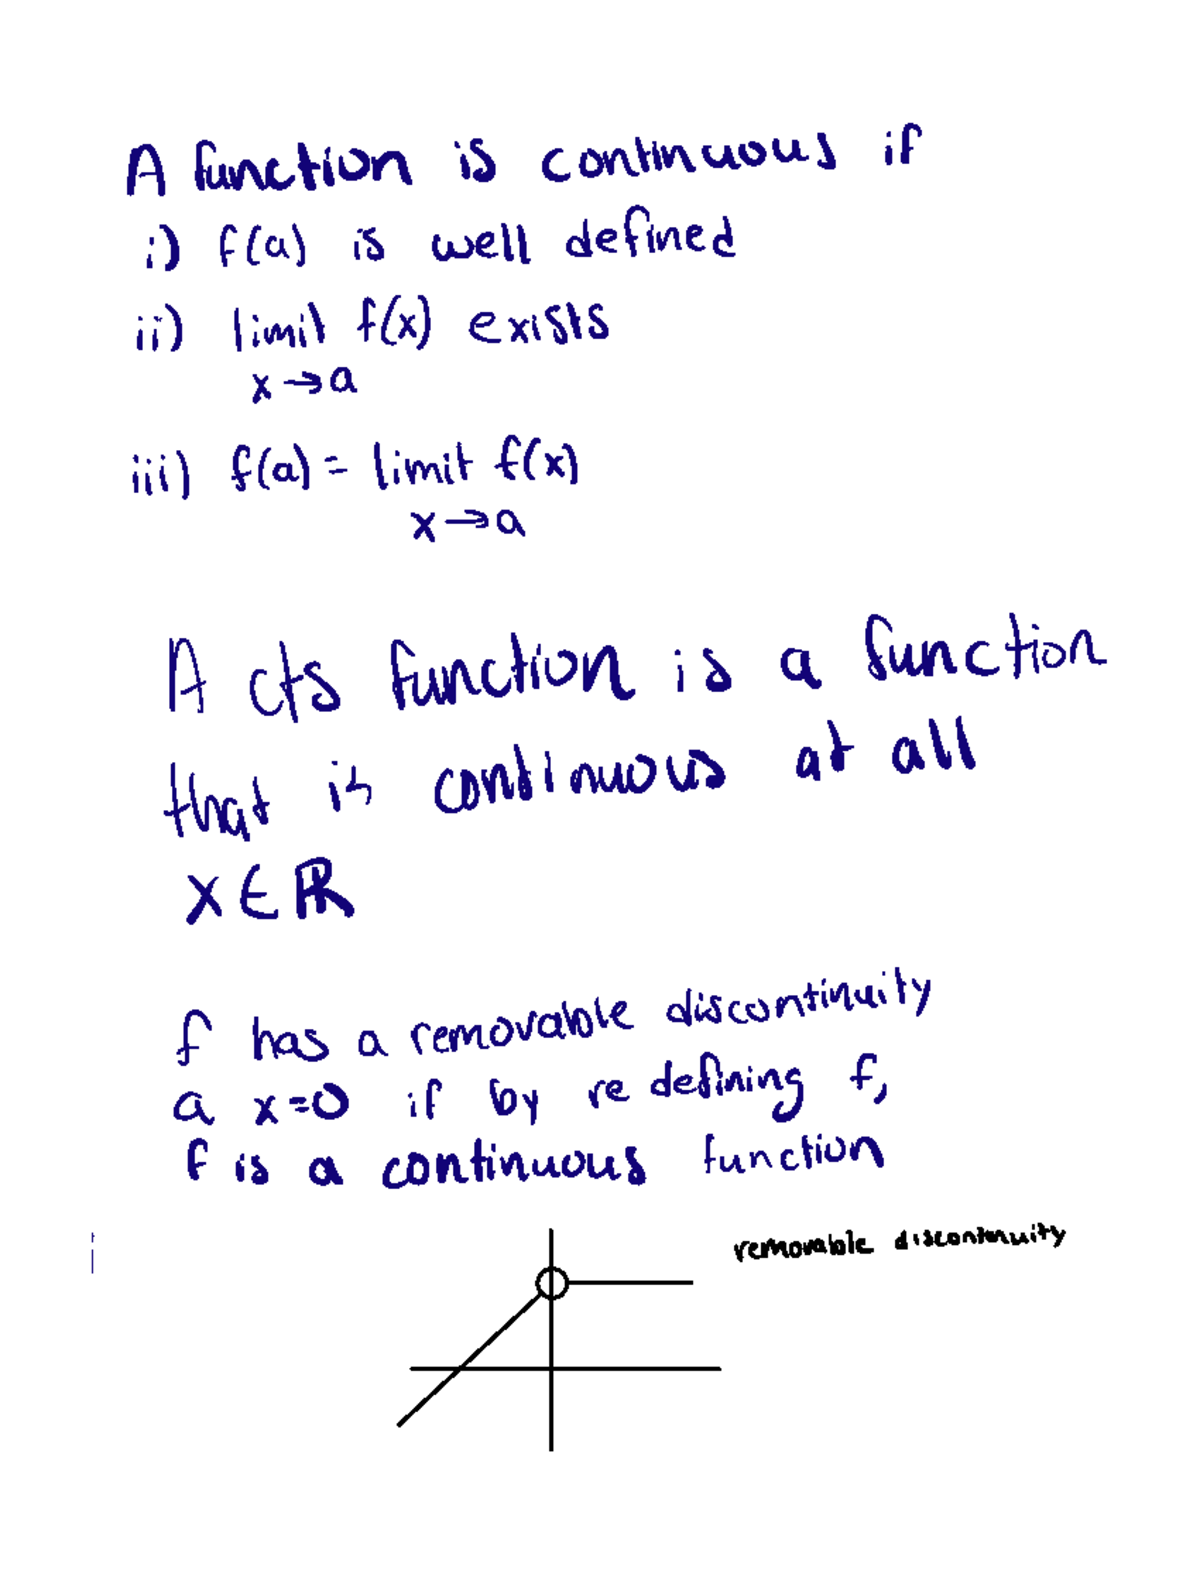 A function is continuous if
i) f(a) is well defined
ii) limit f(x) exists
x→a
iii) f(a) = limit f(x)
x→a
A cts function is a function
that is continuous at all
x∈ℝ
f has a removable discontinuity
a x=0 if by re defining f,
f is a continuous function
removable discontinuity